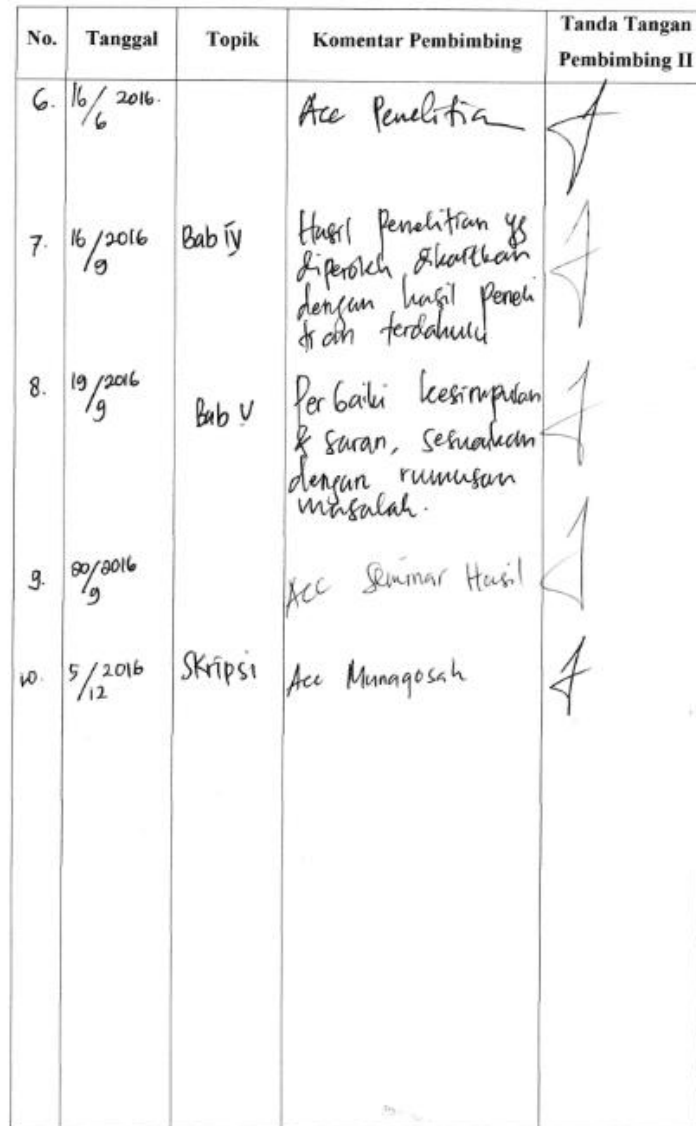 No. Tanggal Topik Komentar Pembimbing Tanda Tangan Pembimbing II
6. 16/6 2016. Acc Penelitian
7. 16/9 2016 Bab IV Hasil Penelitian yg
diperoleh dikaitkan
dengan hasil peneli
tian terdahulu
8. 19/9 2016 Bab V Perbaiki kesimpulan
& saran, sesuaikan
dengan rumusan
masalah.
9. 20/9 2016 Acc Seminar Hasil
10. 5/12 2016 Skripsi Acc Munaqosah